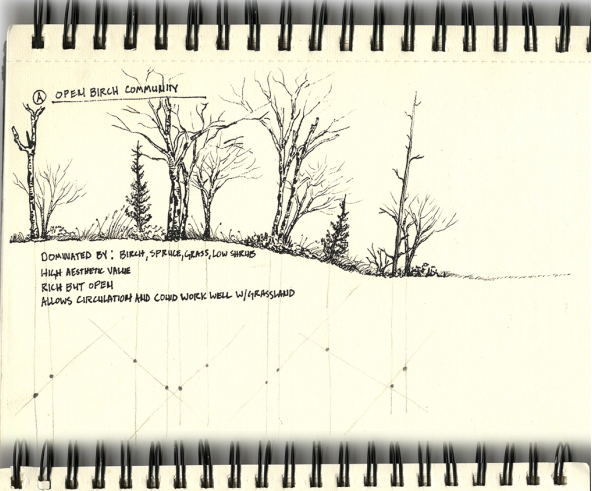 A OPEN BIRCH COMMUNITY
DOMINATED BY: BIRCH, SPRUCE, GRASS, LOW SHRUB
HIGH AESTHETIC VALUE
RICH BUT OPEN
ALLOWS CIRCULATION AND COULD WORK WELL W/GRASSLAND